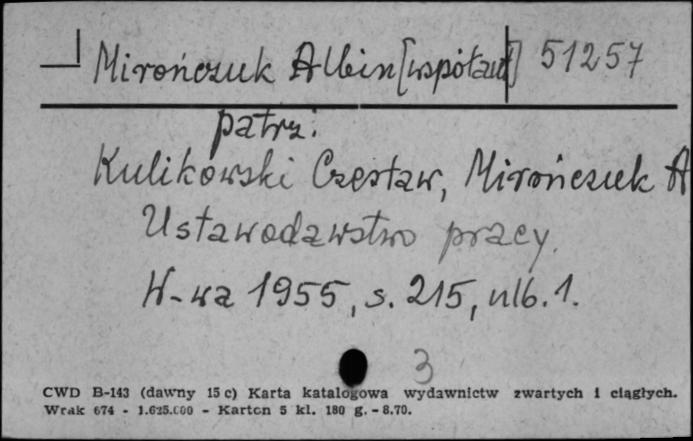 Mirończuk Albin [współaut] 51257
patrz:
Kulikowski Czesław, Mirończuk A
Ustawodawstwo pracy.
W-wa 1955, s. 215, nlb. 1.
3
CWD B-143 (dawny 15 c) Karta katalogowa wydawnictw zwartych i ciągłych.
Wrak 674 - 1.625.000 - Karton 5 kl. 180 g. - 8.70.